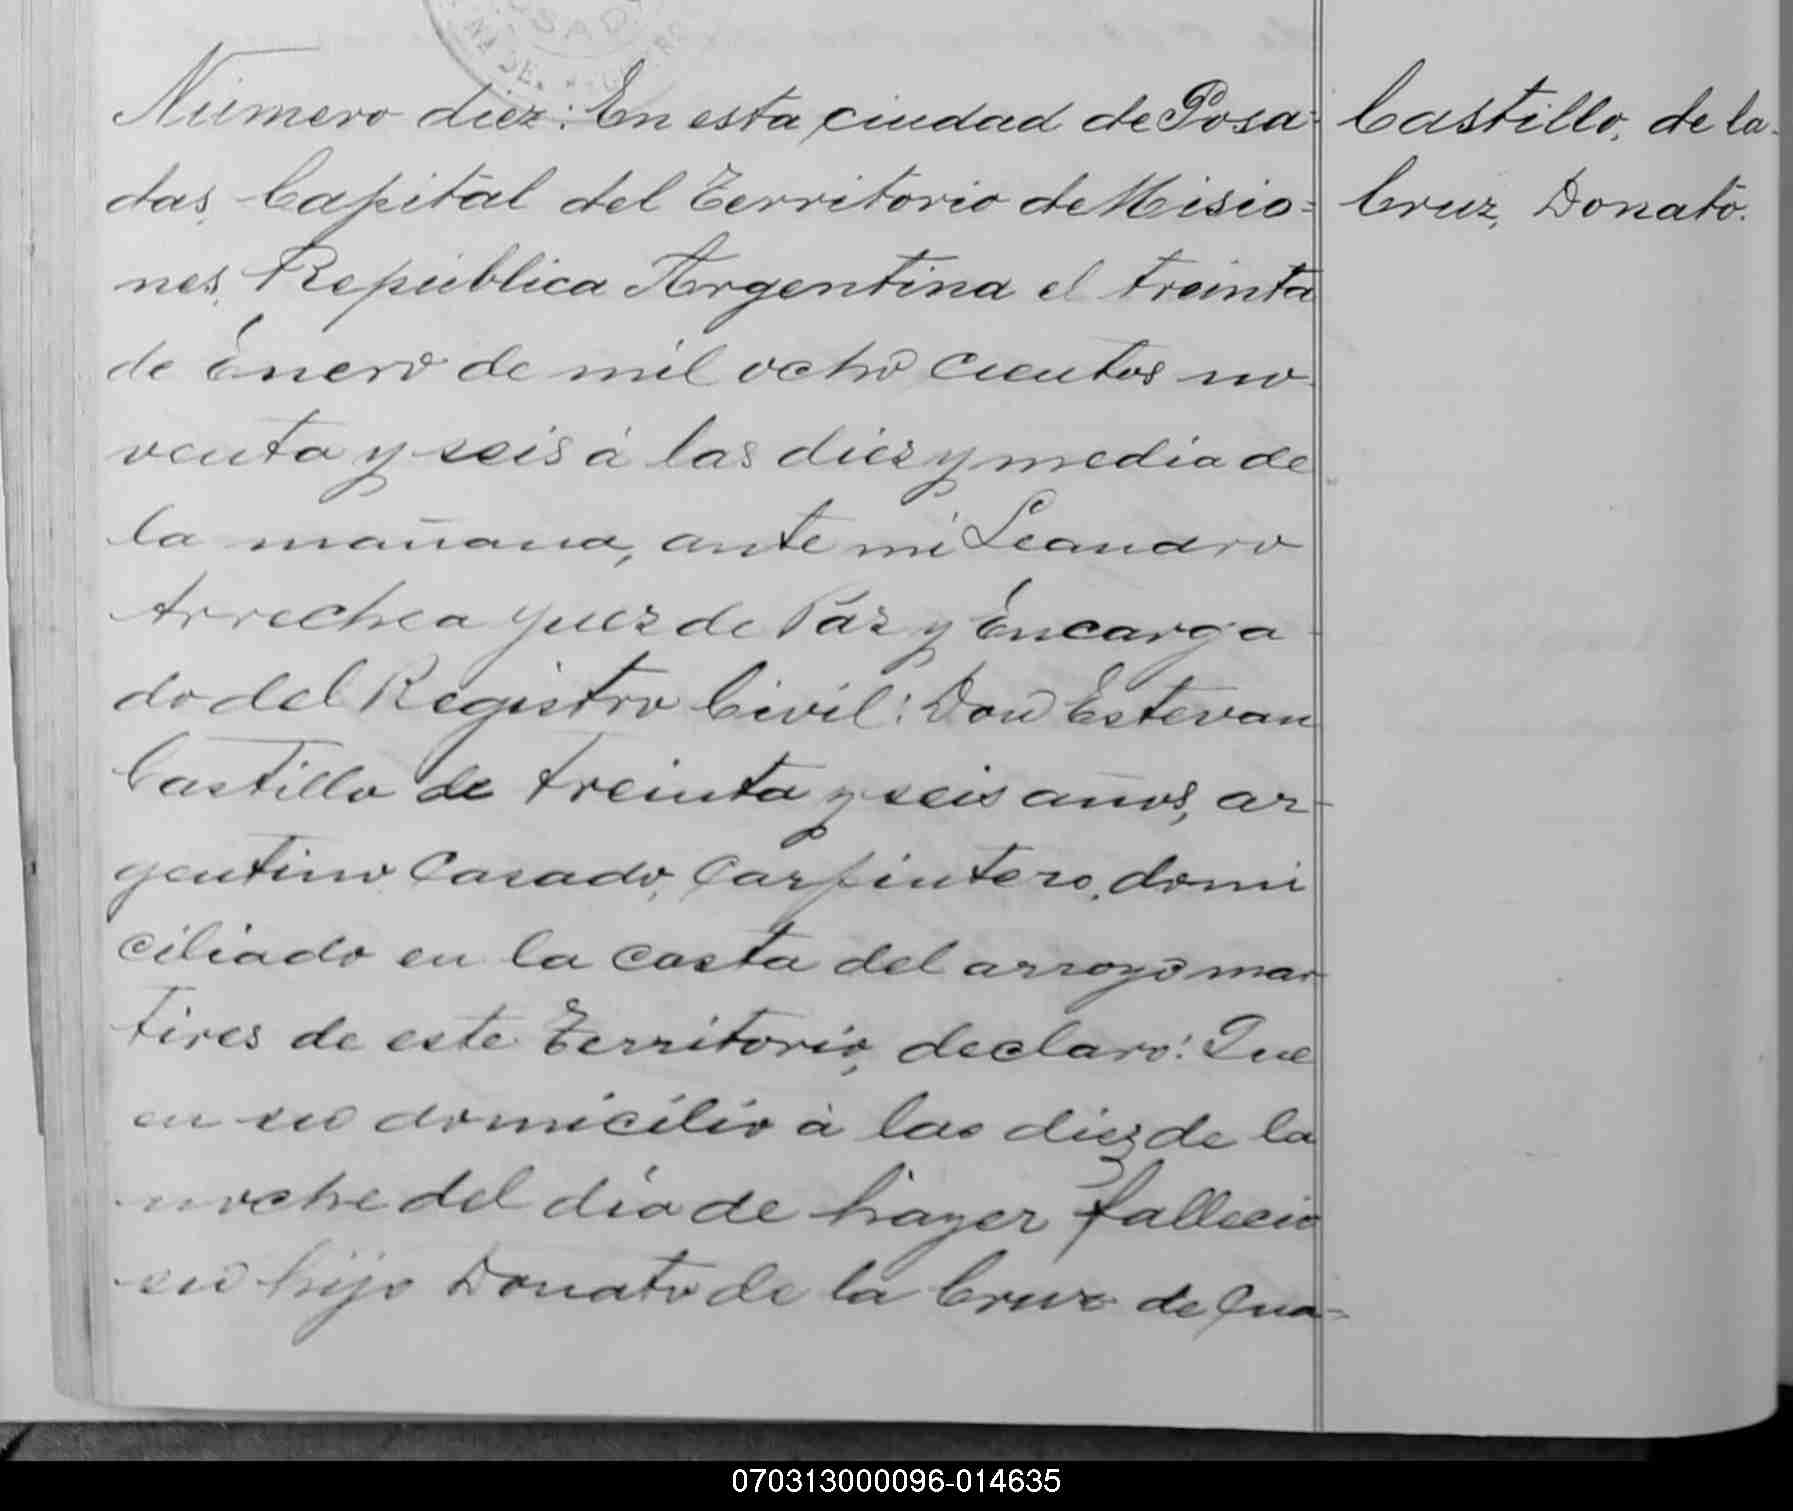 Número diez: En esta ciudad de Posa-
das, Capital del Territorio de Misio=
nes, República Argentina el treinta
de Enero de mil ocho cientos no-
venta y seis á las diez y media de
la mañana, ante mi Leandro
Arrechea Juez de Paz y Encarga-
do del Registro Civil: Don Estevan
Castillo de treinta y seis años, ar-
gentino Casado, Carpintero, domi
ciliado en la costa del arroyo mar
tires de este Territorio, declaró: Que
en su domicilio á las diez de la
noche del día de hayer falleció
su hijo Donato de la Cruz de Cua=
Castillo, de la
Cruz, Donato.
070313000096-014635